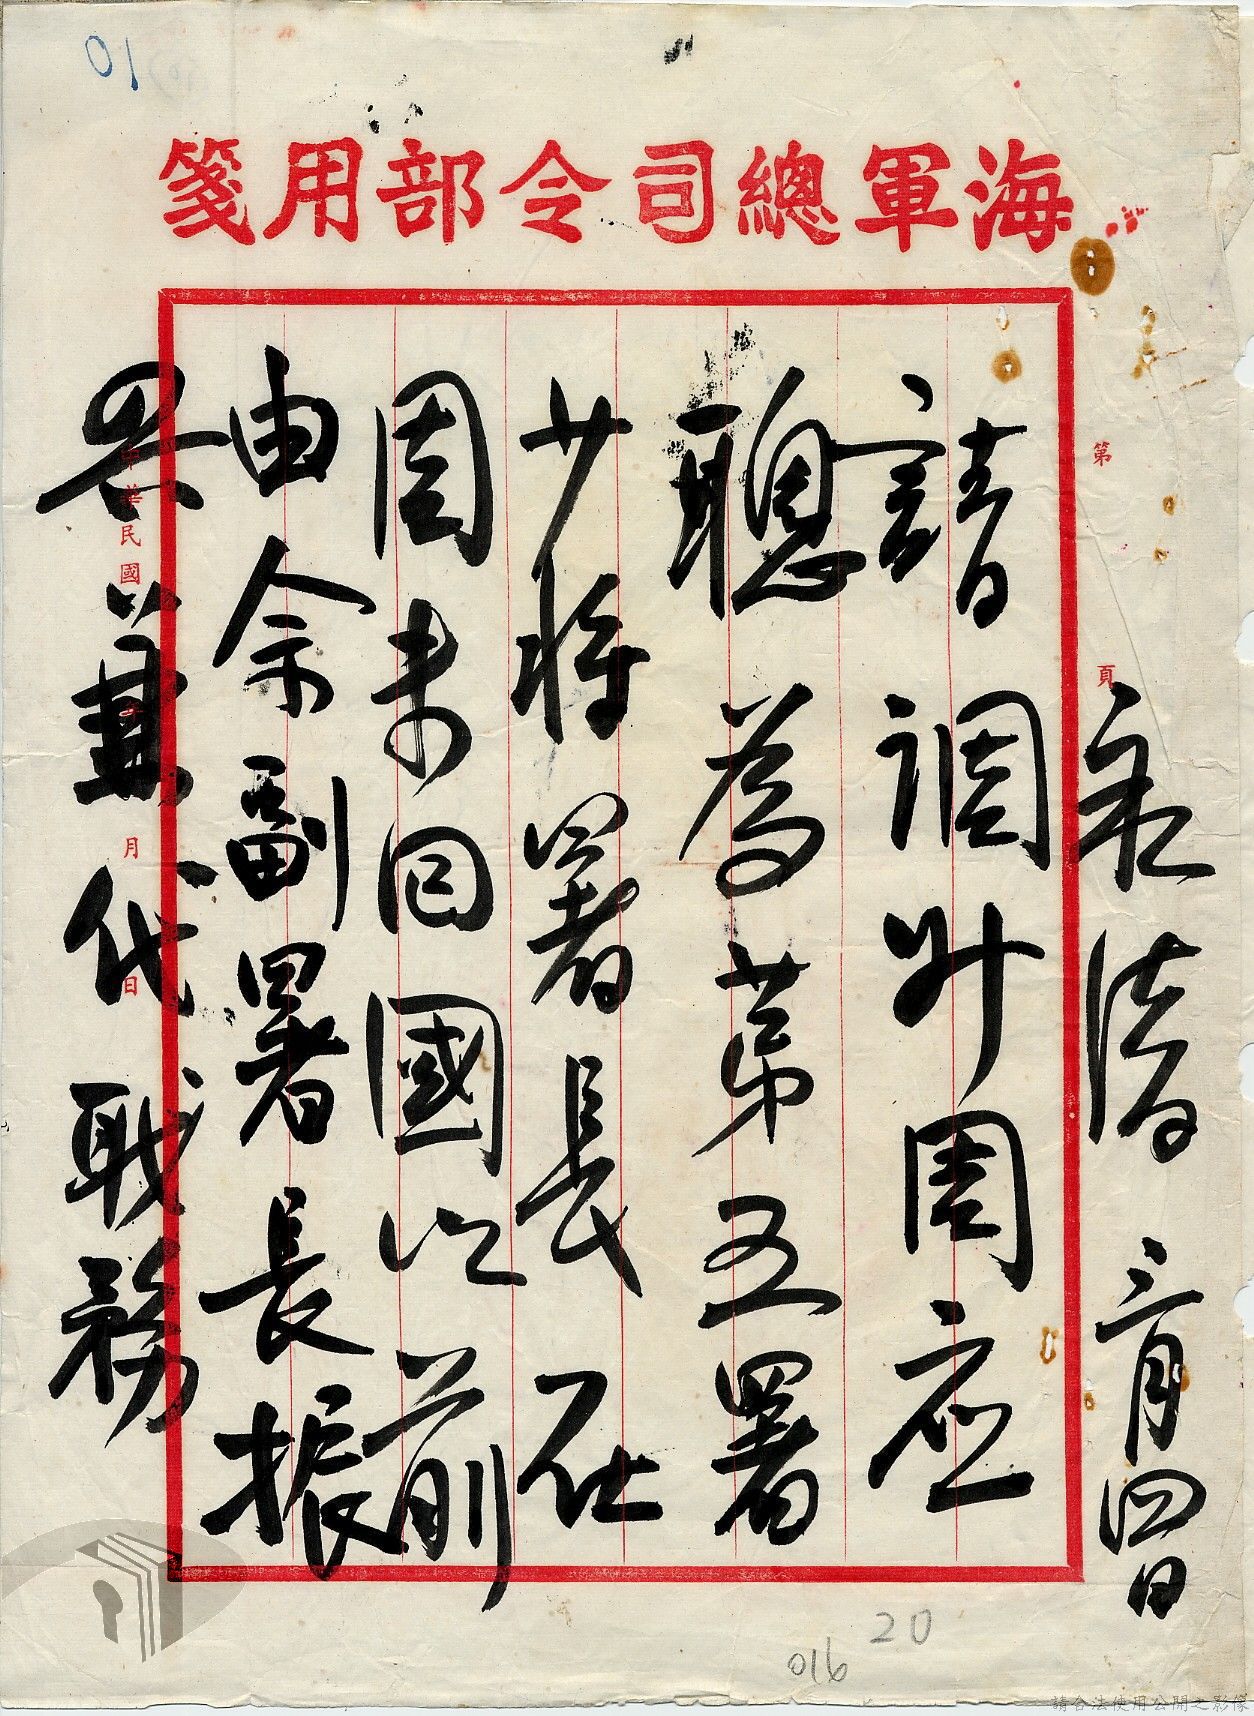 海軍總司令部用箋
第 頁
永清 三月四日
請調升周应
聰為第五署
少將署長在
周未回國以前
由余副署長振
興兼代職務
中華民國 年 月 日
01
20
016
請合法使用公開之影像